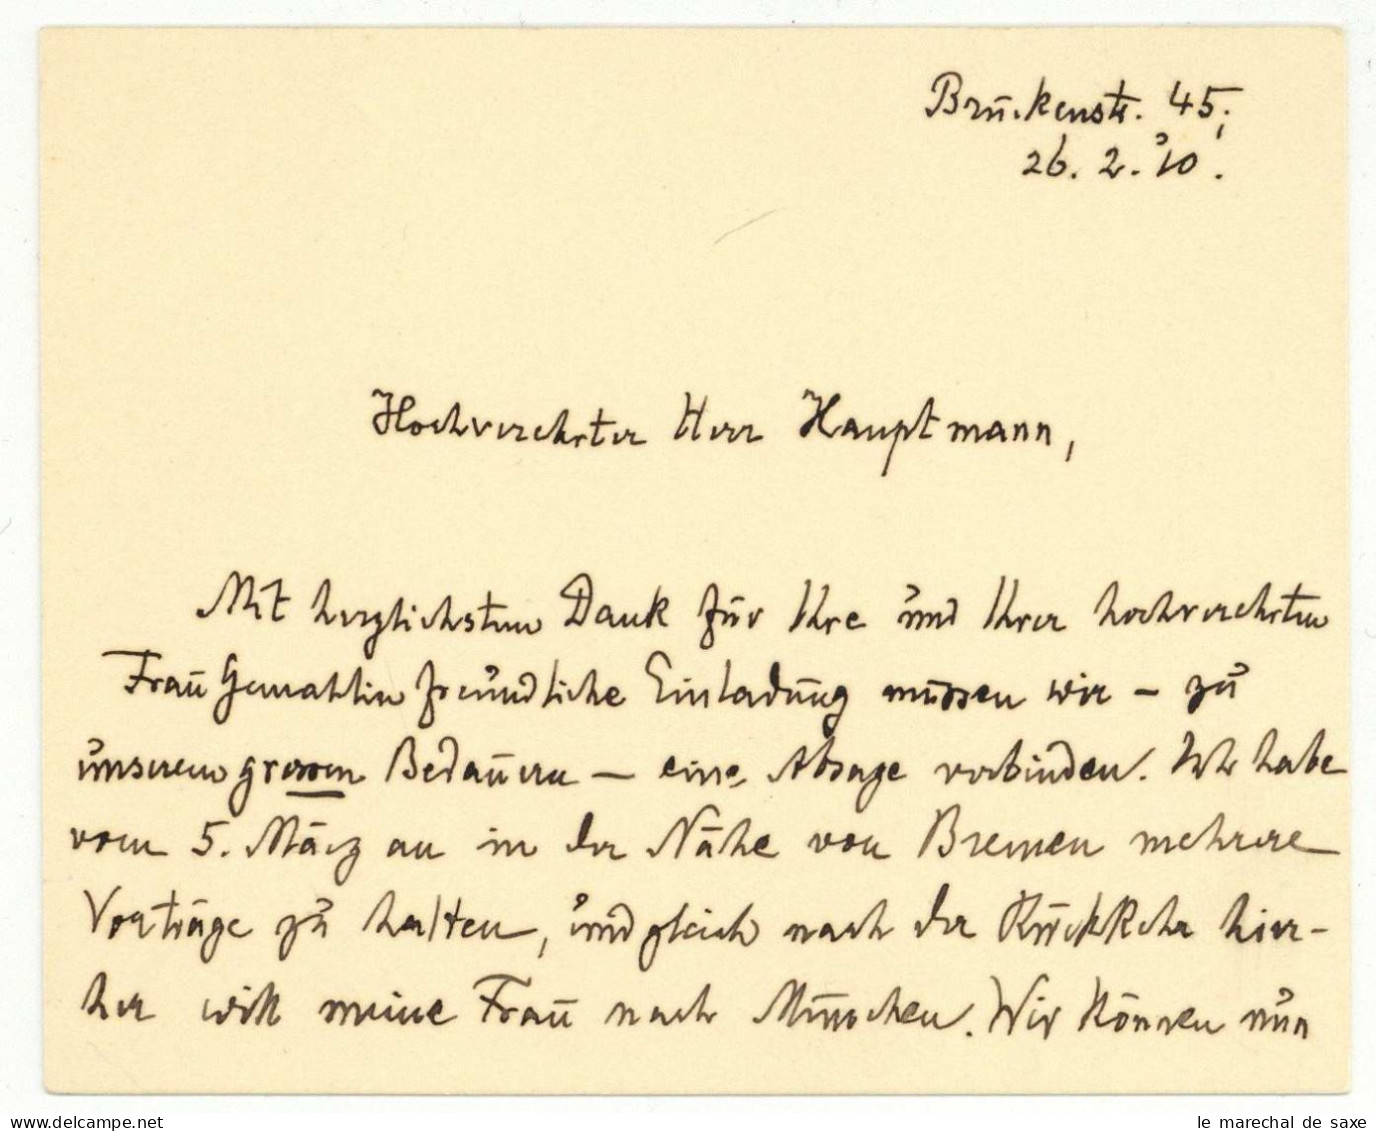 Brückenstr. 45;
26. 2. '10.
Hochverehrter Herr Hauptmann,
Mit herzlichstem Dank für Ihre und Ihrer hochverehrten
Frau Gemahlin freundliche Einladung müssen wir – zu
unserem grossen Bedauern – eine Absage verbinden. Ich habe
vom 5. März an in der Nähe von Bremen mehrere
Vorträge zu halten, und gleich nach der Rückkehr hier-
her will meine Frau nach München. Wir können nun
delcampe.net
le marechal de saxe